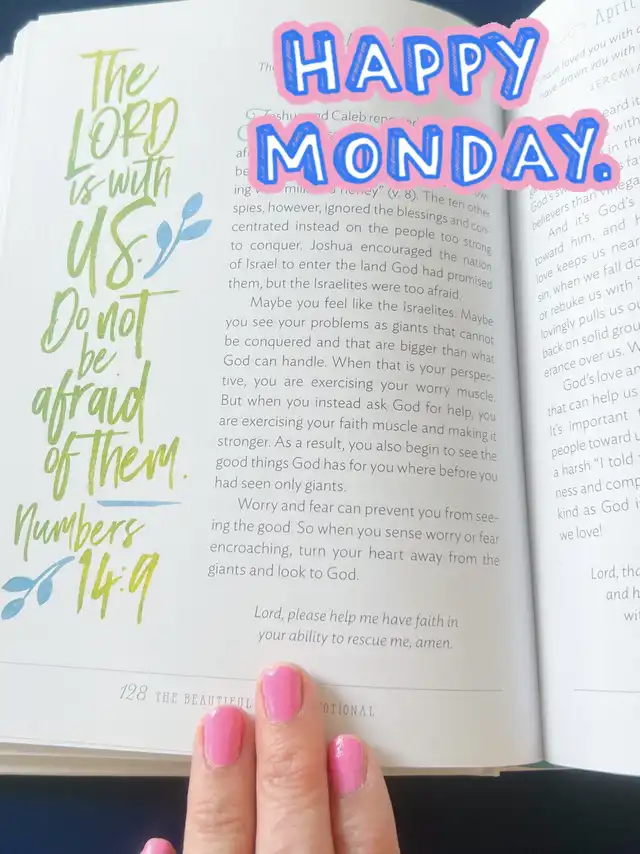 HAPPY
MONDAY.
The
LORD
is with
us.
Do not
be
afraid
of them.
Numbers
14:9
and Caleb
ing
honey" (v. 8). The ten other
spies, however, ignored the blessings and con-
centrated instead on the people too strong
to conquer. Joshua encouraged the nation
of Israel to enter the land God had promised
them, but the Israelites were too afraid.
Maybe you feel like the Israelites. Maybe
you see your problems as giants that cannot
be conquered and that are bigger than what
God can handle. When that is your perspec-
tive, you are exercising your worry muscle.
But when you instead ask God for help, you
are exercising your faith muscle and making it
stronger. As a result, you also begin to see the
good things God has for you where before you
had seen only giants.
Worry and fear can prevent you from see-
ing the good. So when you sense worry or fear
encroaching, turn your heart away from the
giants and look to God.
Lord, please help me have faith in
your ability to rescue me, amen.
128 THE BEAUTIFUL
April
have loved you with
have drawn you with
JEREMIA
heard it
with
in the
believers than
And it's God's
toward him, and
love keeps us near
sin, when we fall do
or rebuke us with
lovingly pulls us ou
back on solid groun
erance over us. W
God's love an
that can help us
It's important
people toward u
a harsh "I told
ness and comp
kind as God i
we love!
Lord, tha
and h
wi